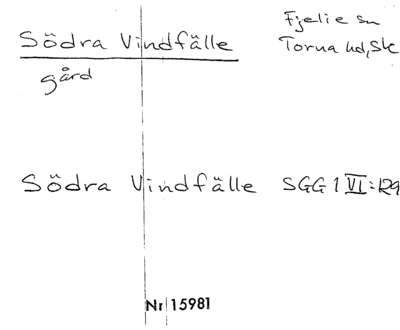 Södra Vindfälle
Fjelie sn
Torna hd, Sk
gård
Södra Vindfälle SGG 1 VI:129
Nr 15981